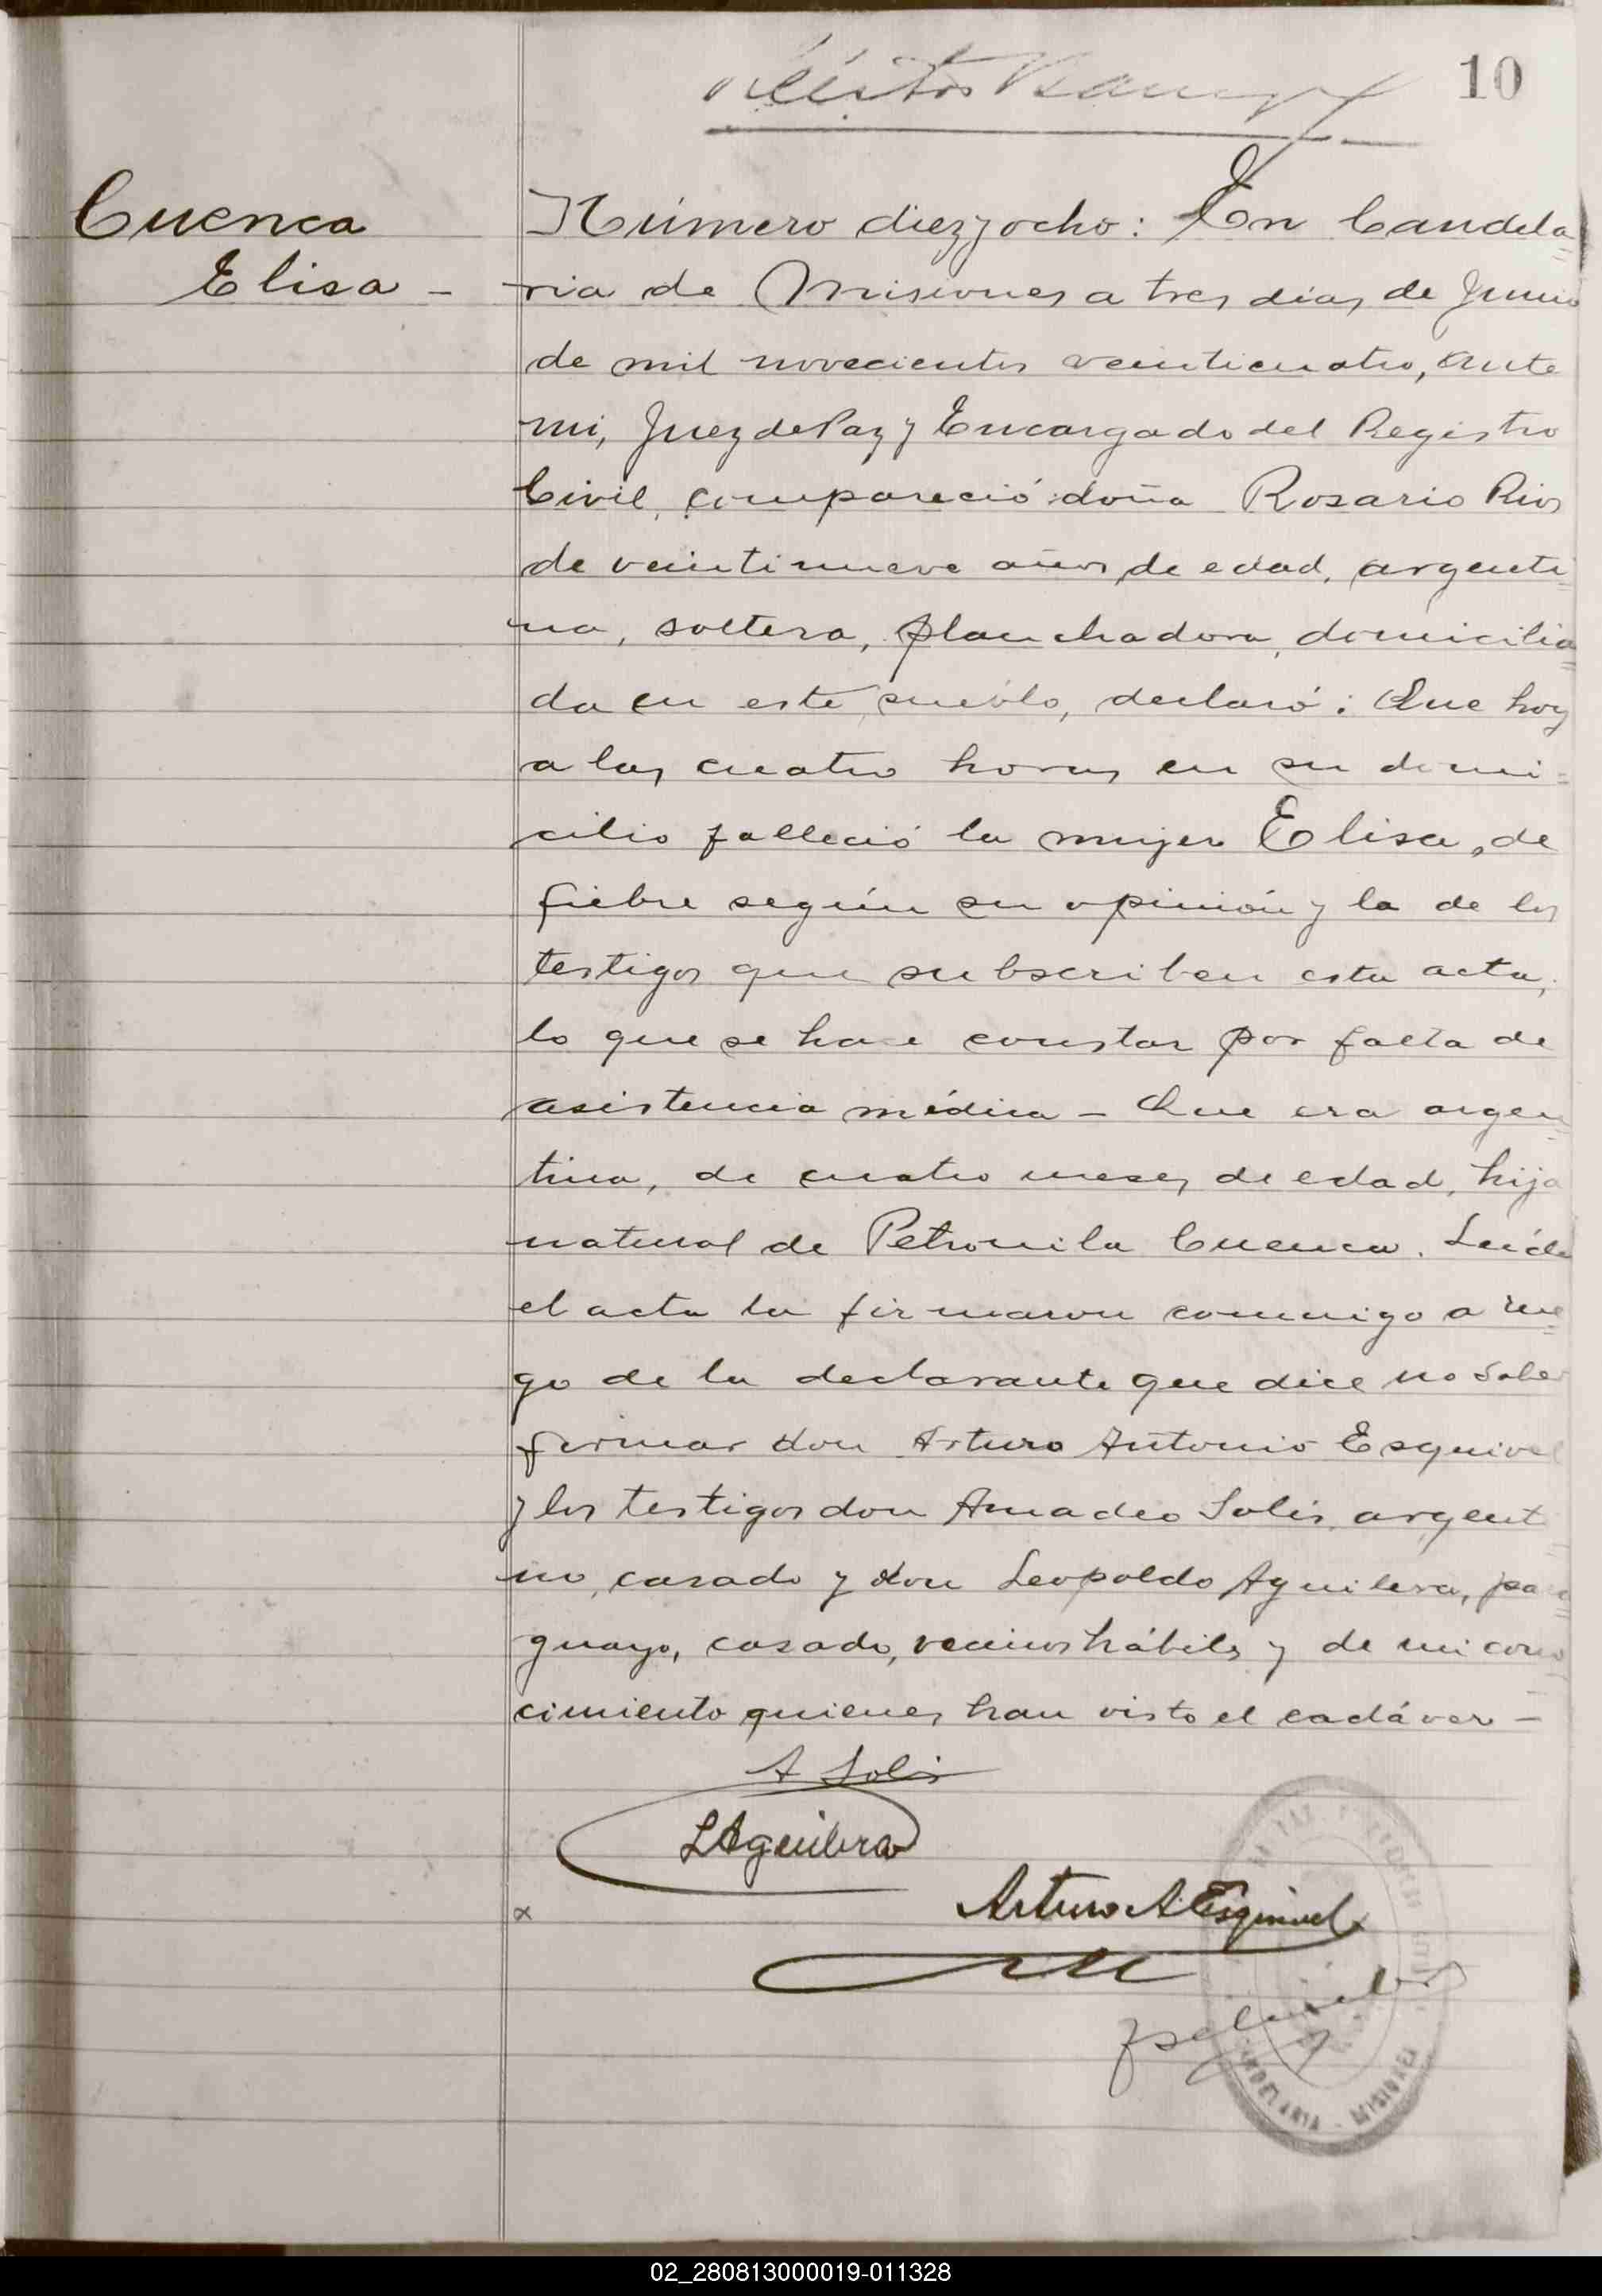 10
Cuenca
Elisa -
Número diez y ocho: En Candela=
ria de Misiones a tres días de Junio
de mil novecientos veinticuatro, ante
mi, Juez de Paz y Encargado del Registro
Civil, compareció doña Rosario Rios
de veintinueve años de edad, argenti=
na, soltera, planchadora, domicilia=
da en este pueblo, declaró: Que hoy
a las cuatro horas en su domi=
cilio falleció la mujer Elisa, de
fiebre según su opinión y la de los
testigos que subscriben esta acta,
lo que se hace constar por falta de
asistencia médica - Que era argen=
tina, de cuatro meses de edad, hija
natural de Petronila Cuenca. Leída
el acta la firmaron conmigo a rue=
go de la declarante que dice no saber
firmar don Arturo Antonio Esquivel
y los testigos don Amadeo Solís, argenti=
no, casado y don Leopoldo Aguilera, para=
guayo, casado, vecinos hábiles y de mi cono=
cimiento quienes han visto el cadáver -
A Solis
LAguilera
Arturo A Esquivel
CANDELARIA - MISIONES
02_280813000019-011328